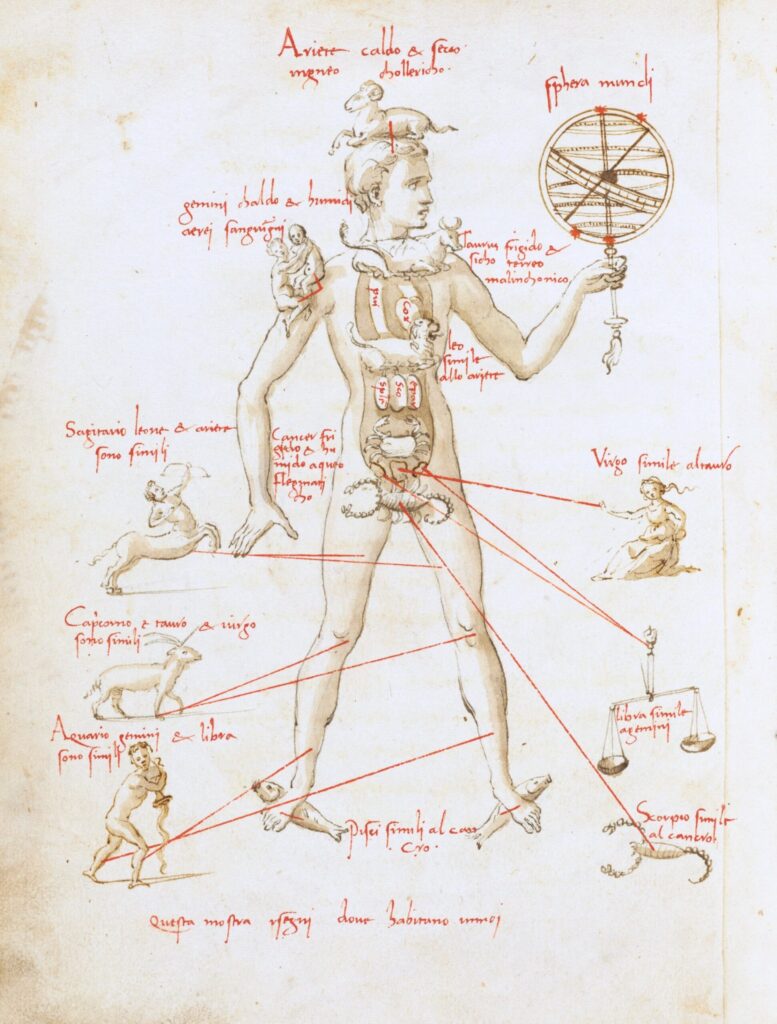 Ariete caldo & secco
igneo chollericho.
sphera mundi
gemini chaldo & humidi
aerei sanguigni
Taurus frigido &
sicho terreo
malinchonico
pul
Cor
leo
simile
allo ariete
sple
Sto
epar
Sagitario leone & ariete
sono simili
Cancer fri
gido & hu
mido aqueo
flegmati
cho
Virgo simile al tauro
Capricorno e tauro & virgo
sono simili
libra simile
a gemini
Aquario gemini & libra
sono simili
Pisci simili al can
Cro.
Scorpio simile
al cancro.
Questa mostra i segni dove habitano